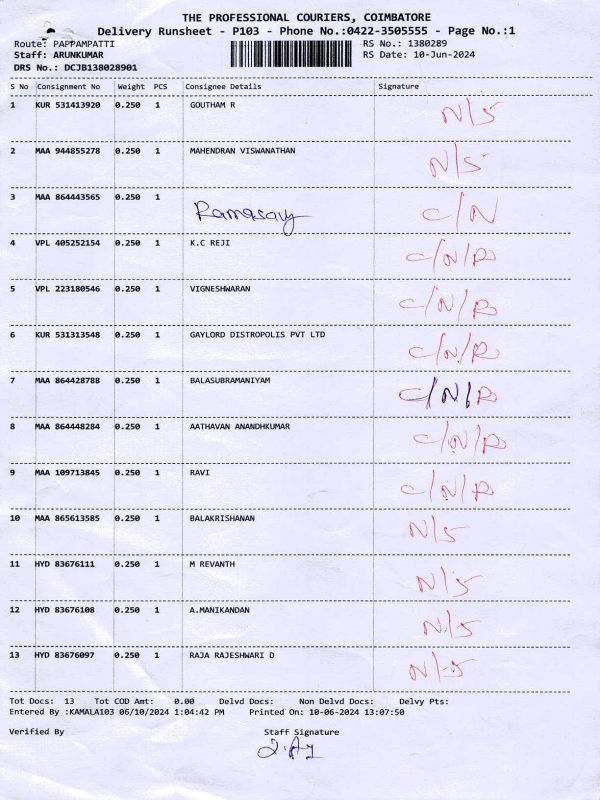 THE PROFESSIONAL COURIERS, COIMBATORE
Delivery Runsheet - P103 - Phone No.:0422-3505555 - Page No.:1
Route: PAPPAMPATTI RS No.: 1380289
Staff: ARUNKUMAR RS Date: 10-Jun-2024
DRS No.: DCJB138028901
S No Consignment No Weight PCS Consignee Details Signature
1 KUR 531413920 0.250 1 GOUTHAM R N/S
2 MAA 944855278 0.250 1 MAHENDRAN VISWANATHAN N/S
3 MAA 864443565 0.250 1 Ramasamy C/N
4 VPL 405252154 0.250 1 K.C REJI C/N/R
5 VPL 223180546 0.250 1 VIGNESHWARAN C/N/R
6 KUR 531313548 0.250 1 GAYLORD DISTROPOLIS PVT LTD C/N/R
7 MAA 864428788 0.250 1 BALASUBRAMANIYAM C/N/R
8 MAA 864448284 0.250 1 AATHAVAN ANANDHKUMAR C/N/R
9 MAA 109713845 0.250 1 RAVI C/N/R
10 MAA 865613585 0.250 1 BALAKRISHANAN N/S
11 HYD 83676111 0.250 1 M REVANTH N/S
12 HYD 83676108 0.250 1 A.MANIKANDAN N/S
13 HYD 83676097 0.250 1 RAJA RAJESHWARI D N/S
Tot Docs: 13 Tot COD Amt: 0.00 Delvd Docs: Non Delvd Docs: Delvy Pts:
Entered By :KAMALA103 06/10/2024 1:04:42 PM Printed On: 10-06-2024 13:07:50
Verified By Staff Signature